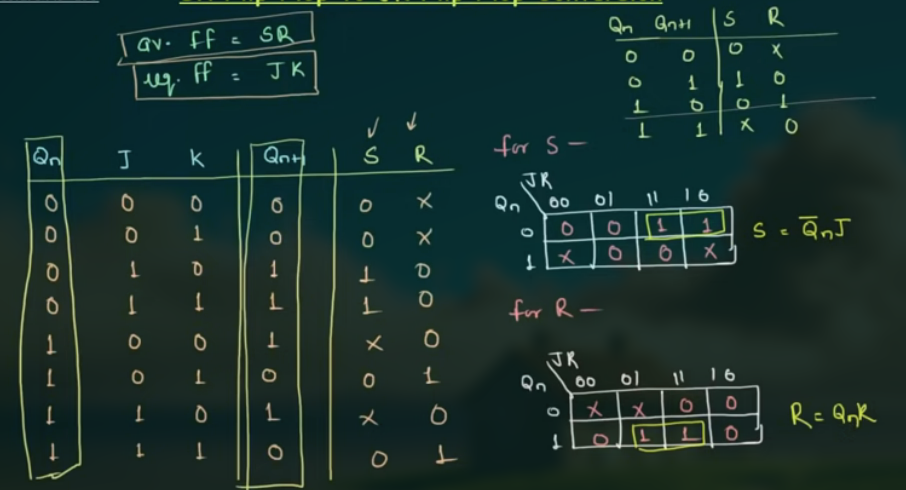 av. ff = SR
req. ff = JK
Qn Qn+1 S R
0 0 0 x
0 1 1 0
1 0 0 1
1 1 x 0
Qn J K Qn+1 S R
0 0 0 0 0 x
0 0 1 0 0 x
0 1 0 1 1 0
0 1 1 1 1 0
1 0 0 1 x 0
1 0 1 0 0 1
1 1 0 1 x 0
1 1 1 0 0 1
for S -
JK
Qn 00 01 11 10
0 0 0 1 1
1 x 0 0 x
S = Q̅nJ
for R -
JK
Qn 00 01 11 10
0 x x 0 0
1 0 1 1 0
R = QnK